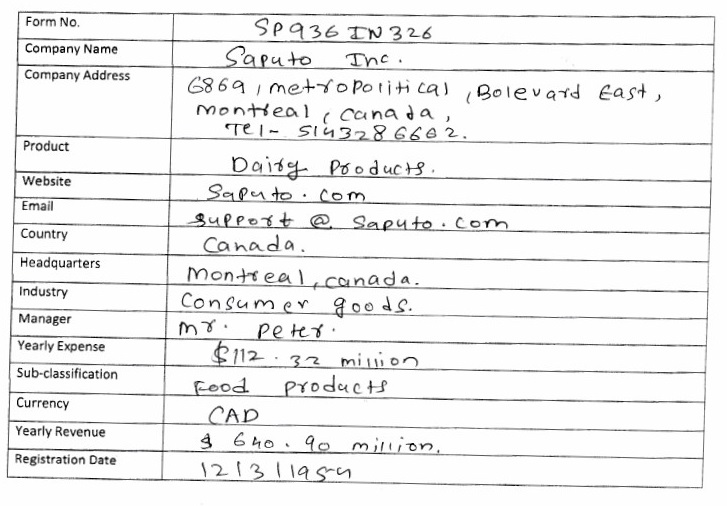 Form No. SP936IN326
Company Name Saputo Inc.
Company Address 6869, metropolitical, Bolevard East,
montreal, canada,
Tel- 5143286662.
Product Dairy Products.
Website Saputo.com
Email support@saputo.com
Country Canada.
Headquarters montreal, canada.
Industry Consumer goods.
Manager mr. peter.
Yearly Expense $112.32 million
Sub-classification Food products
Currency CAD
Yearly Revenue $640.90 million.
Registration Date 12/3/1954